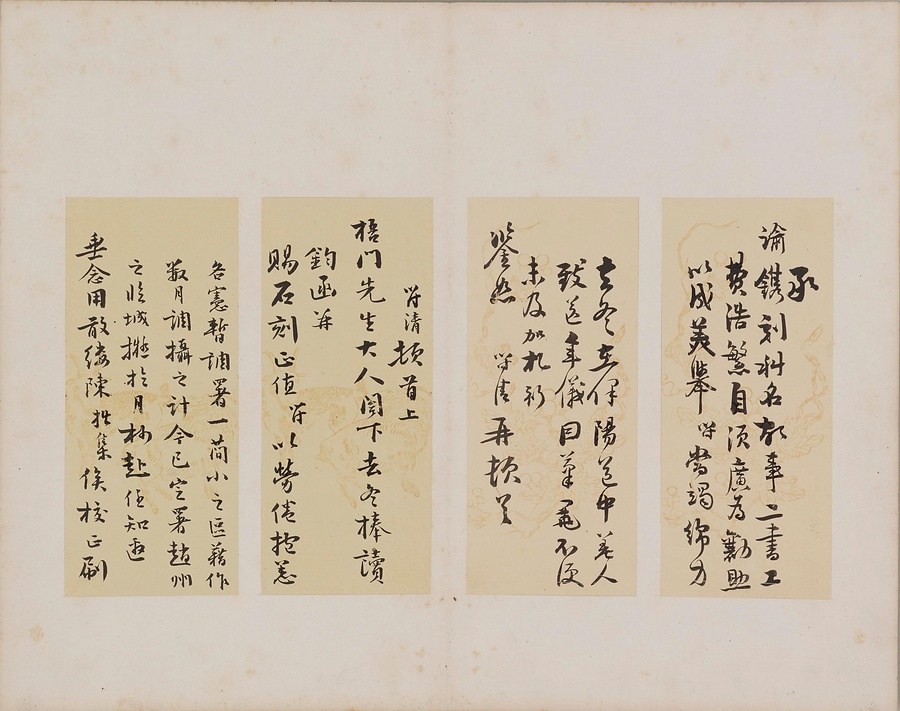 承
諭鐫刻科名故事二書工
費浩繁自須廣為勸助
以成美舉 當竭綿力
去冬在 陽道中差人
致送年儀因筆凍不便
未及加札祈
鑒恕 再頓首
清頓首上
梧門先生大人閣下去冬捧讀
鈞函并
賜石刻正值 以勞倦抱恙
各憲暫調署一簡小之區藉作
數月調攝之計今已定署趙州
之臨城擬於月杪赴任知邀
垂念用敢縷陳拙集俟校正刷